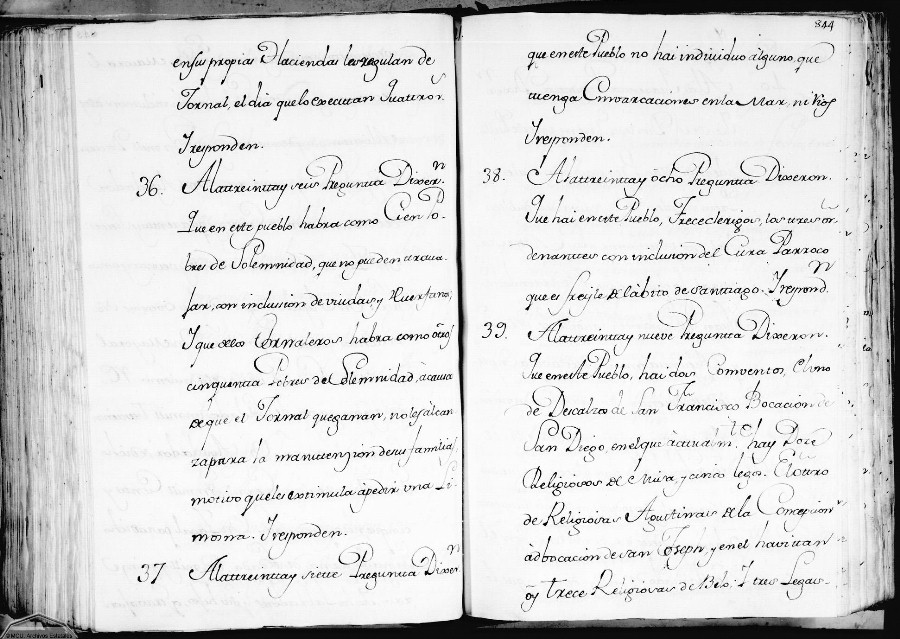 en sus propias Haciendas les regulan de
Jornal, el dia que lo executan quatro rr.
Y responden.
36. A la treinta y seis Pregunta Dixer.n
Que en este pueblo habra como Cien Po-
bres de Solemnidad, que no pueden traua-
jar, con inclusion de viudas y Huerfanos,
Y que de los Jornaleros habra como otros
cinquenta Pobres de Solemnidad, à causa
de que el Jornal que ganan, no les àlcan
za para la manutenzion de su familia,
motivo que les extimula àpedir una Li-
mosna. Y responden.
37 A la treinta y siete Pregunta Dixer.n
844
que en este Pueblo no hai individuo alguno, que
tuenga Envarcaciones en la Mar, ni Rios
Y responden.
38. A la treinta y òcho Pregunta Dixeron.
Que hai en este Pueblo, Trece clerigos, los tres òr-
denantes con inclusion del Cura Parroco
que es freyle de l'àbito de Santiago. Y respond.n
39. A la treinta y nueve Pregunta Dixeron.
Que en este Pueblo, hai dos Conventos, El uno
de Descalzos de San Francisco Bocacion de
San Diego, en el que àctualm.te hay Doce
Religiosos de Misa, y cinco legos. El otro
de Religiosas Agustinas de la Concepcion
àdbocacion de san Joseph, y en el havitan
oy trece Religiosas de Belo, Y tres Legas-
©MCU. Archivos Estatales